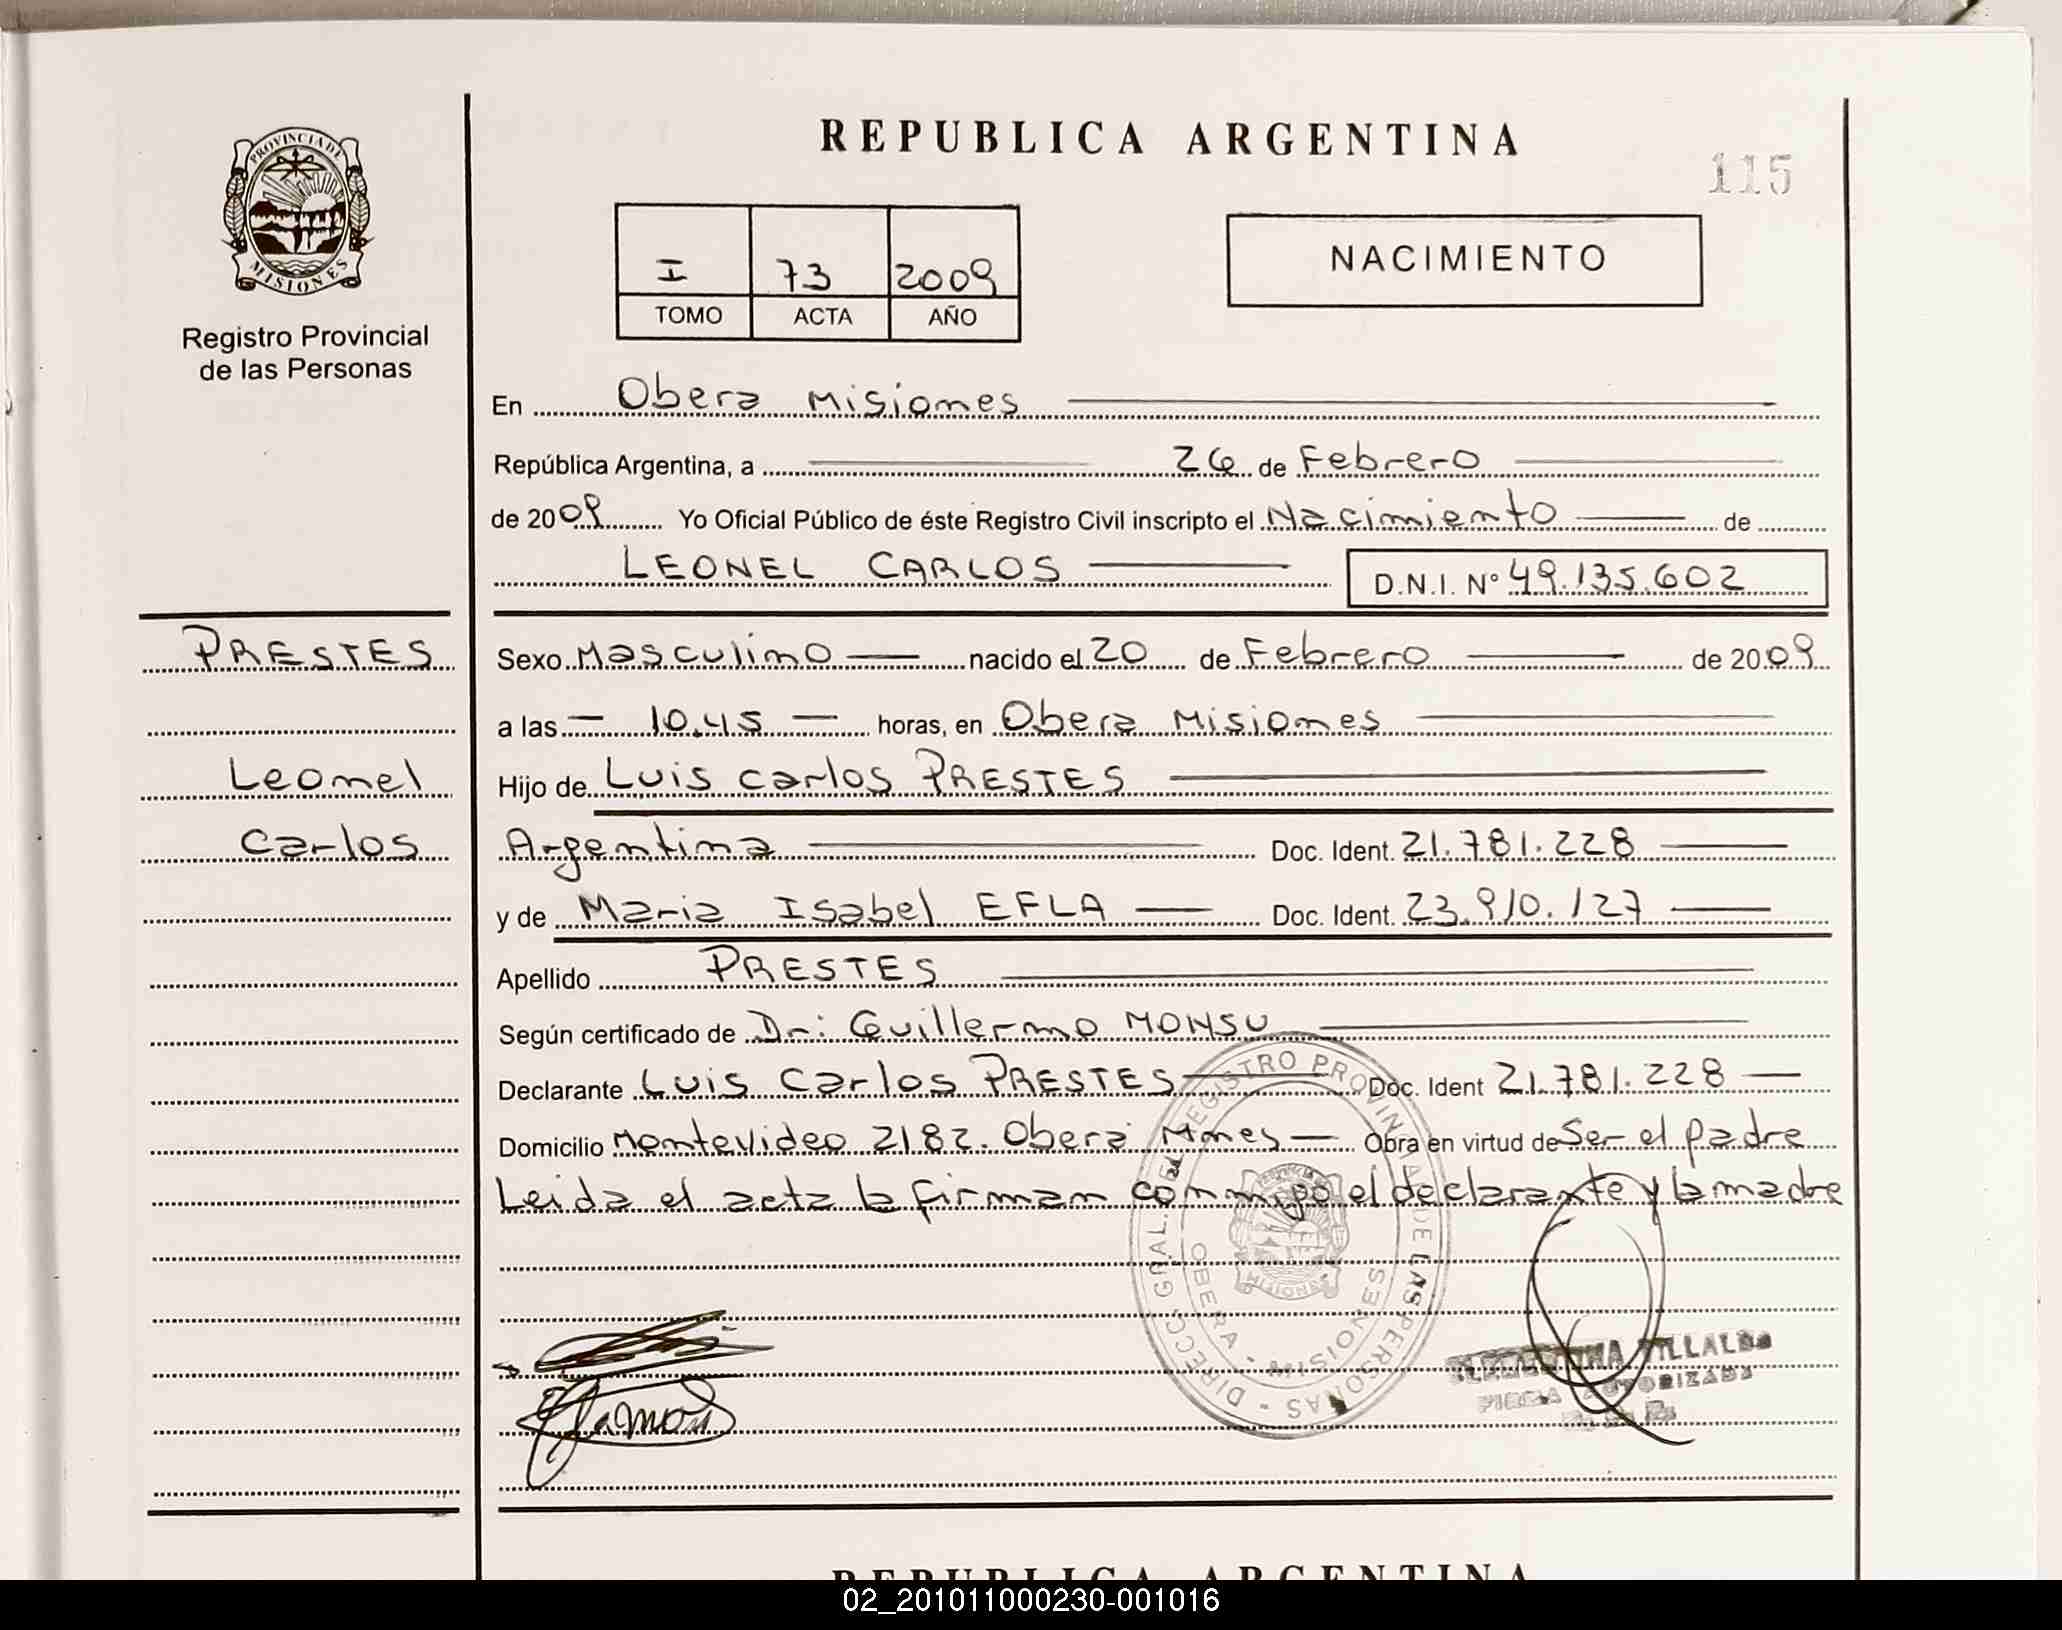 REPUBLICA ARGENTINA
115
PROVINCIA DE
MISIONES
Registro Provincial
de las Personas
I 73 2009
TOMO ACTA AÑO
NACIMIENTO
En Obera Misiones
República Argentina, a 26 de Febrero
de 2009 Yo Oficial Público de éste Registro Civil inscripto el Nacimiento de
LEONEL CARLOS D.N.I. N° 49.135.602
PRESTES
Leonel
Carlos
Sexo Masculino nacido el 20 de Febrero de 2009
a las 10.45 horas, en Obera Misiones
Hijo de Luis Carlos PRESTES
Argentina Doc. Ident. 21.781.228
y de Maria Isabel EFLA Doc. Ident. 23.910.127
Apellido PRESTES
Según certificado de Dr: Guillermo MONSU
Declarante Luis Carlos PRESTES Doc. Ident 21.781.228
Domicilio Montevideo 2182. Oberá Mnes Obra en virtud de Ser el padre
Leida el acta la firman conmigo el declarante y la madre
DIRECC. GRAL. DEL REGISTRO PROVINCIAL DE LAS PERSONAS
OBERA - MISIONES
VILLALBA
FIRMA AUTORIZADA
REPUBLICA ARGENTINA
02_201011000230-001016